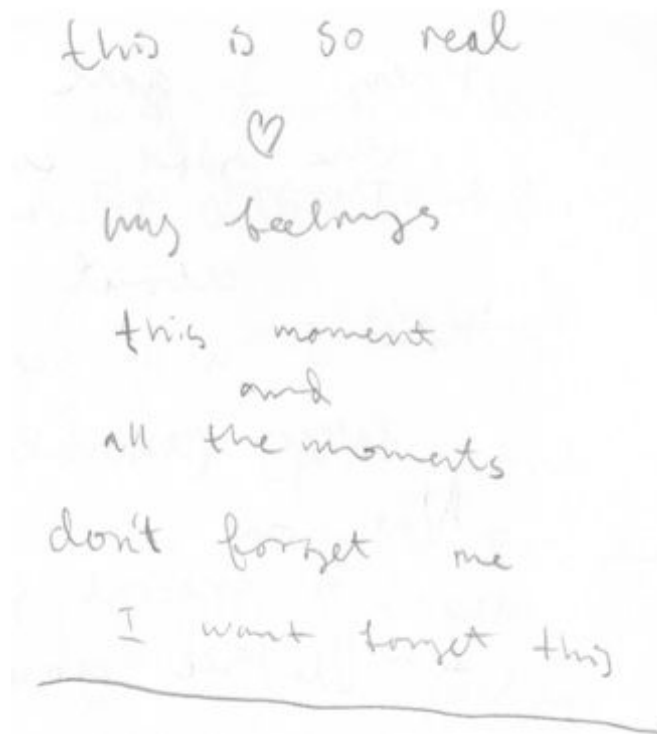 this is so real
♡
my feelings
this moment
and
all the moments
don't forget me
I want forget this